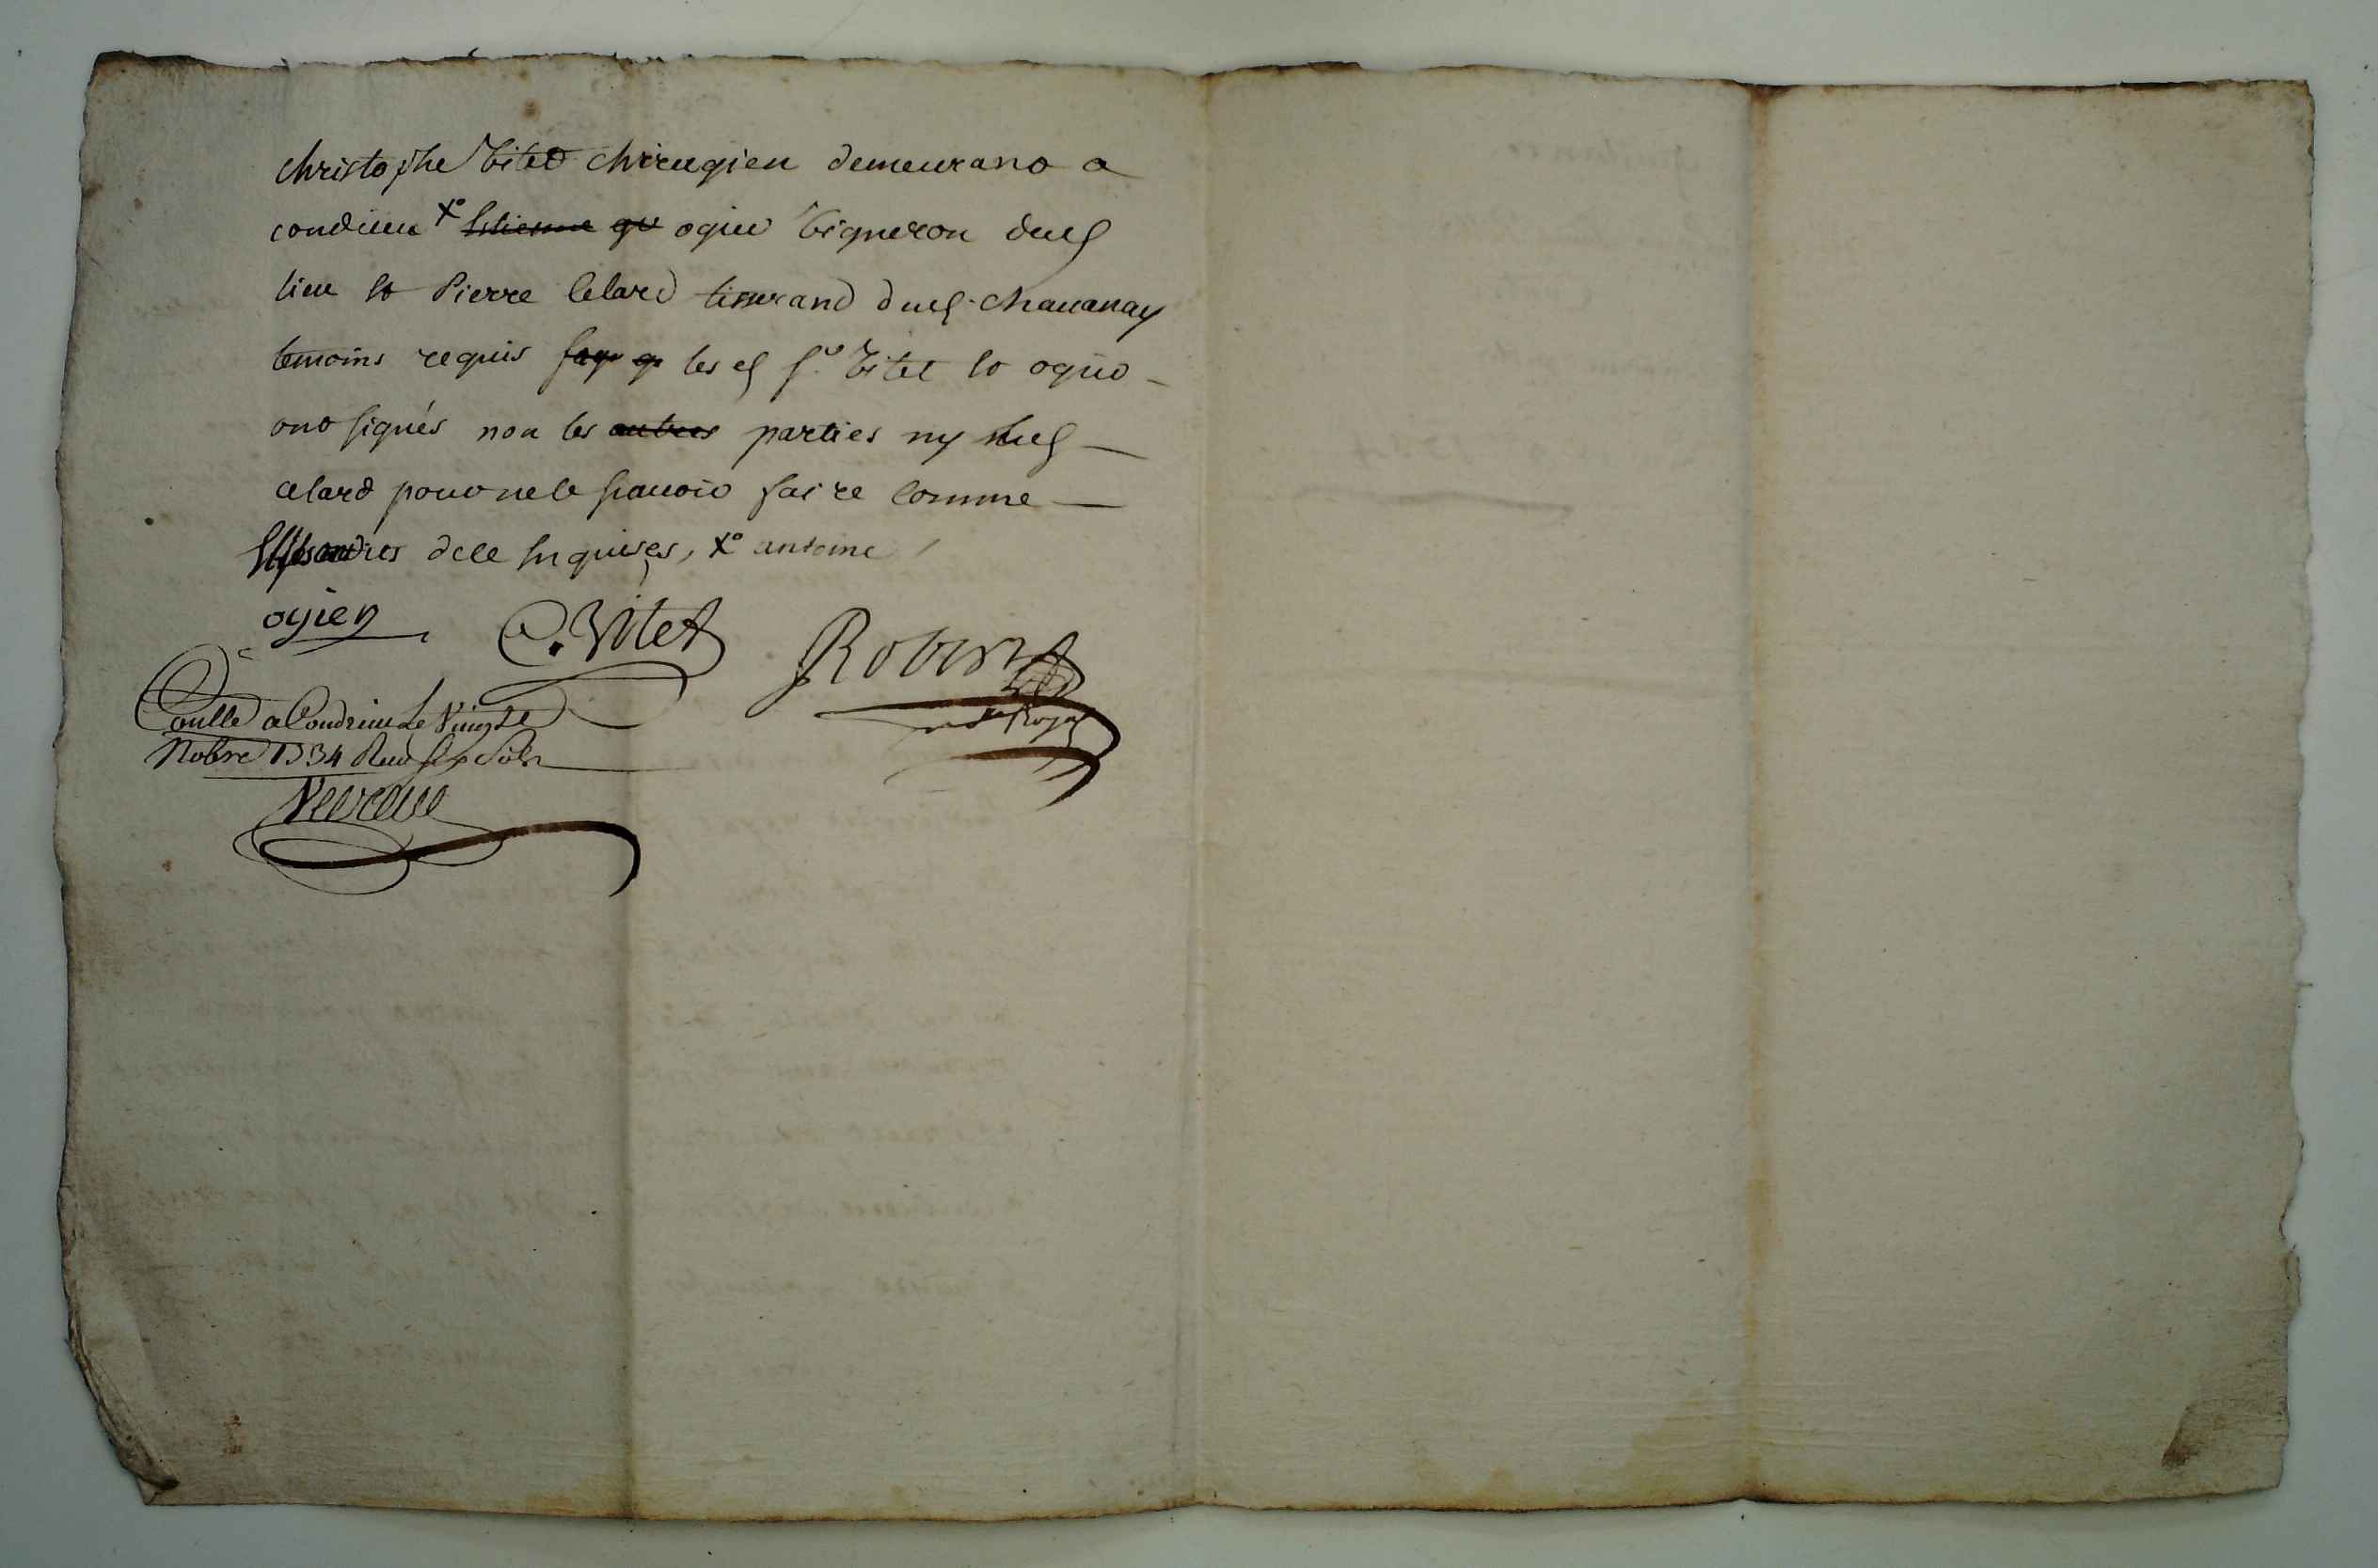 christophe Vitet chirugien demeurant a
condrieu x° Estienne ogier vigneron dud
lieu et Pierre Celard tisserand dud. chauanay
temoins requis lesd sr. Vitet et ogier
ont signés non les autres parties ny led
celard pour ne le scauoir faire comme
ils ont dit de ce enquises, x° antoine
ogier C. Vitet Robert
nore Royal
Conllé a Condrieu Le Vingt
Nobre 1734 Reçu six sols